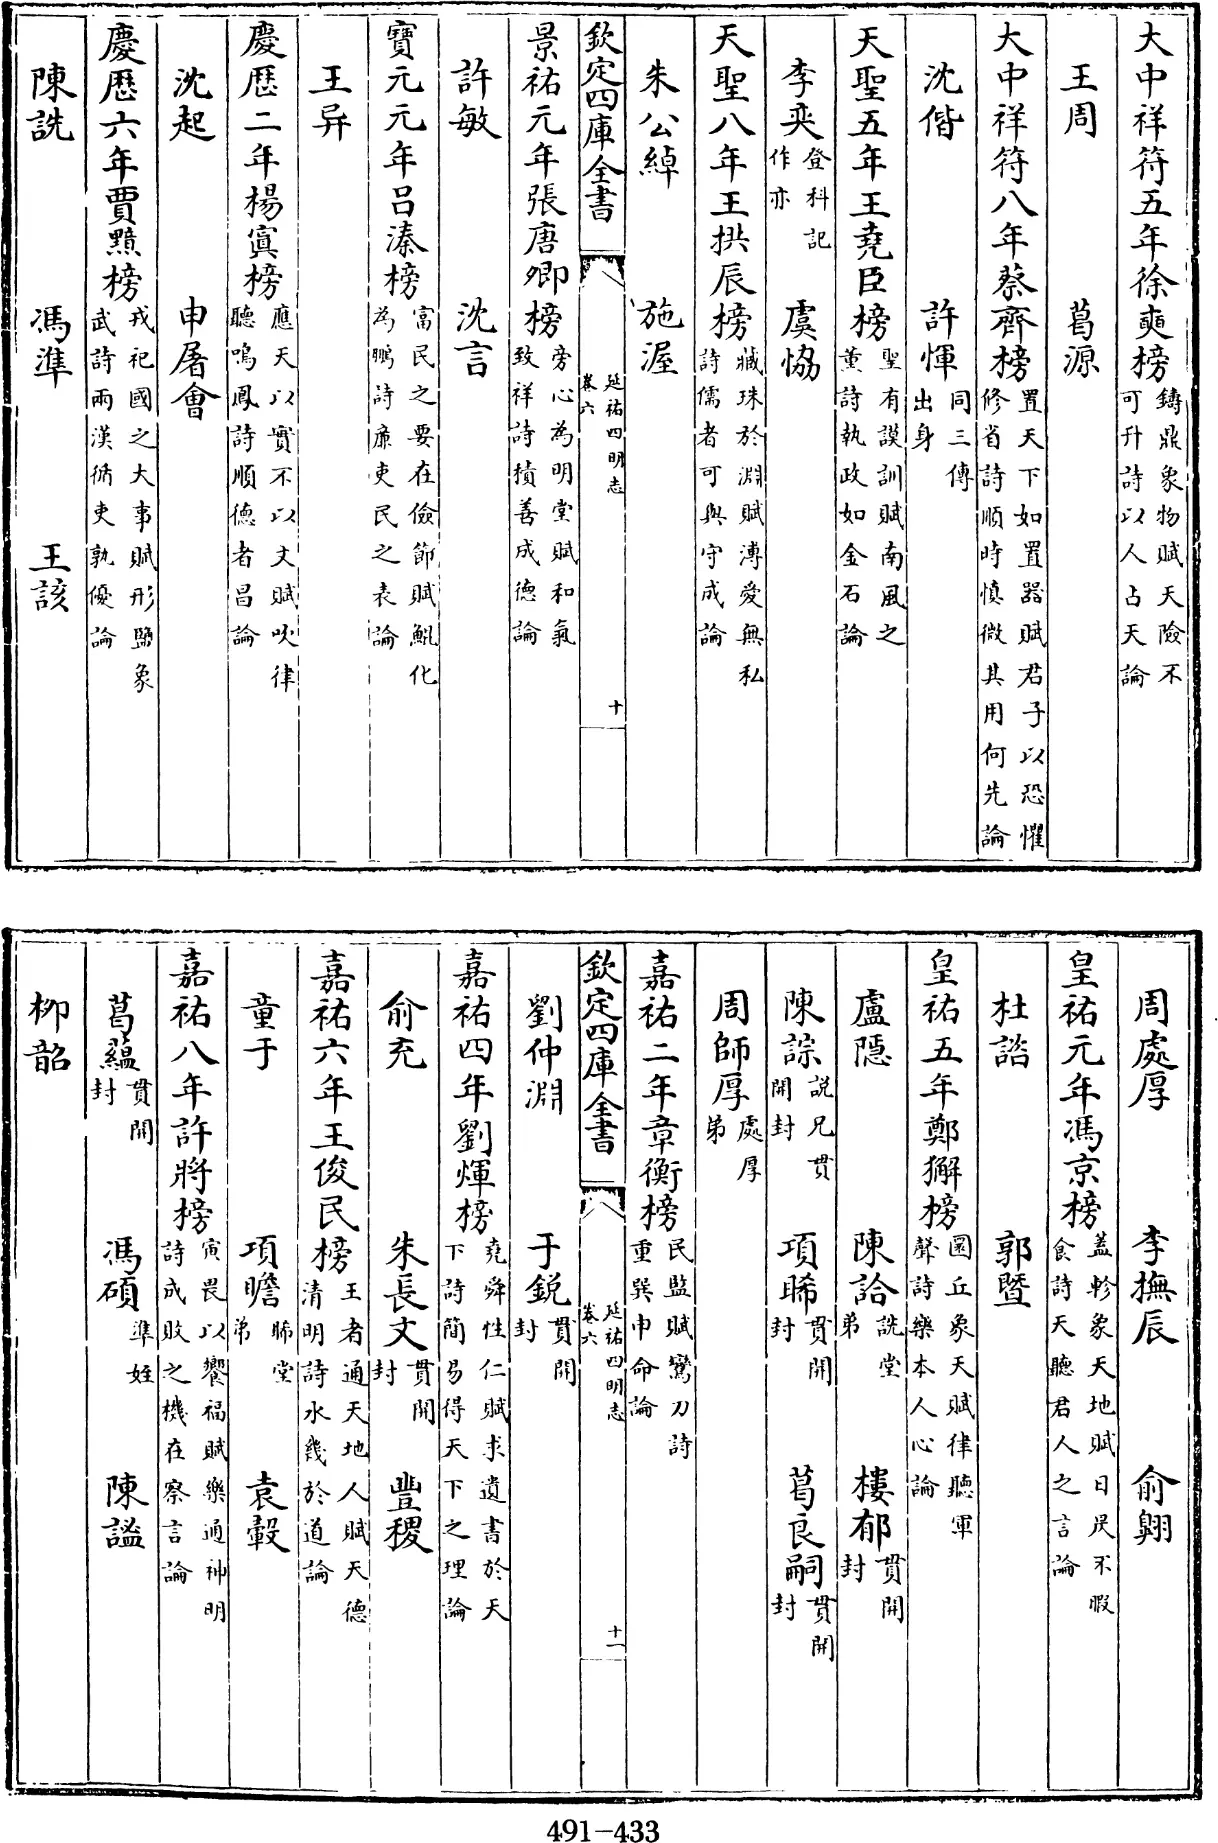 大中祥符五年徐奭榜鑄鼎象物賦天險不可升詩以人占天論
王周　葛源
大中祥符八年蔡齊榜置天下如置器賦君子以恐懼修省詩順時慎微其用何先論
沈偕　許惲同三傳出身
天聖五年王堯臣榜聖有謨訓賦南風之薰詩執政如金石論
李奕登科記作亦　虞協
天聖八年王拱辰榜藏珠於淵賦溥愛無私詩儒者可與守成論
朱公綽　施渥
欽定四庫全書　延祐四明志　卷六　十
景祐元年張唐卿榜旁心為明堂賦和氣致祥詩積善成德論
許敏　沈言
寶元元年呂溱榜富民之要在儉節賦鯤化為鵬詩廉吏民之表論
王异
慶歷二年楊寘榜應天以實不以文賦吹律聽鳴鳳詩順德者昌論
沈起　申屠會
慶歷六年賈黯榜戎祀國之大事賦形鹽象武詩兩漢循吏孰優論
陳詵　馮準　王該
周處厚　李撫辰　俞翱
皇祐元年馮京榜蓋軫象天地賦日昃不暇食詩天聽君人之言論
杜諮　郭暨
皇祐五年鄭獬榜圜丘象天賦律聽軍聲詩樂本人心論
盧隱　陳詥詵堂弟　樓郁貫開封
陳諒說兄貫開封　項晞貫開封　葛良嗣貫開封
周師厚處厚弟
嘉祐二年章衡榜民監賦鸞刀詩重巽巾命論
欽定四庫全書　延祐四明志　卷六　十一
劉仲淵　于銳貫開封
嘉祐四年劉煇榜堯舜性仁賦求遺書於天下詩簡易得天下之理論
俞充　朱長文貫開封　豐稷
嘉祐六年王俊民榜王者通天地人賦天德清明詩水幾於道論
童于　項瞻晞堂弟　袁轂
嘉祐八年許將榜寅畏以饗福賦樂通神明詩成敗之機在察言論
葛蘊貫開封　馮碩準姪　陳謐
柳韶
491-433